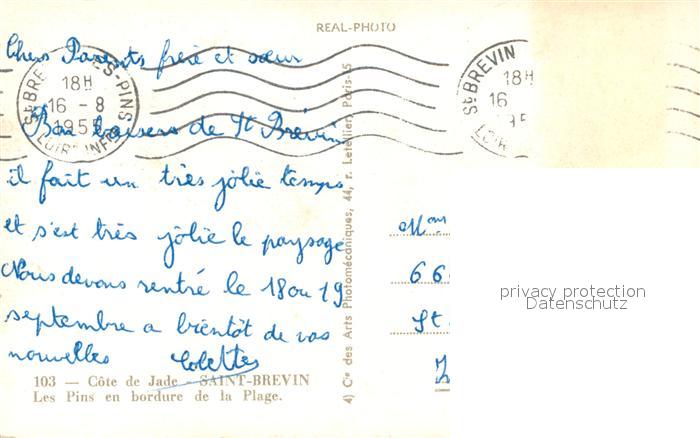 REAL-PHOTO
Chers Parents frère et sœur
St BREVIN-LES-PINS
18H
16 - 8
1955
LOIRE INFRE
St BREVIN
18H
16
195
LOIR
Bon baisers de St Brévin
il fait un très jolie temps
et s'est très jolie le paysage
Nous devons rentré le 18 ou 19
septembre a bientôt de vos
nouvelles Colette
103 — Côte de Jade - SAINT-BREVIN
Les Pins en bordure de la Plage.
4) Cie des Arts Photomécaniques, 44, r. Letellier, Paris-15
66
St
privacy protection
Datenschutz